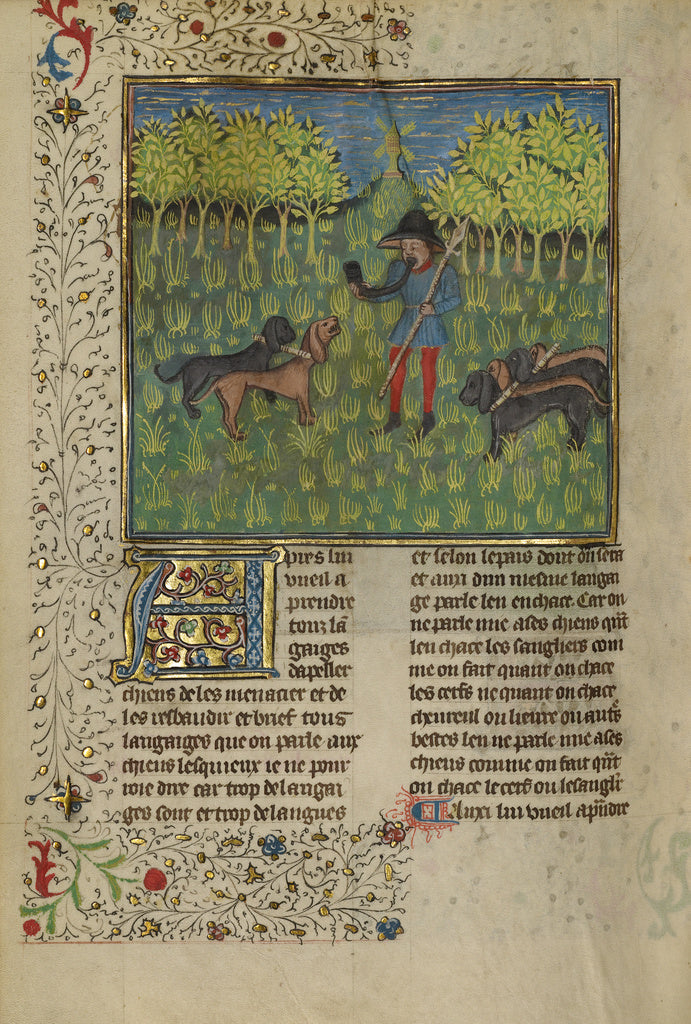 Apres lui
vueil a
prendre
touz lā
gaiges
dapeller
chiens de les menacier et de
les resbaudir et brief tous
langaiges que on parle aux
chiens lesquieux ie ne pour
roie dire car trop de langai
ges sont et trop de langues
et selon le pais dont on sera
et aux dun mesme langai
ge parle len en chace. Car on
ne parle mie a ses chiens qūt
len chace les sangliers com
me on fait quant on chace
les cerfs ne quant on chace
cheureul ou lieure ou autˢ
bestes len ne parle mie a ses
chiens comme on fait qūt
on chace le cerf ou le sanglr
Aluxi lui vueil apñdre